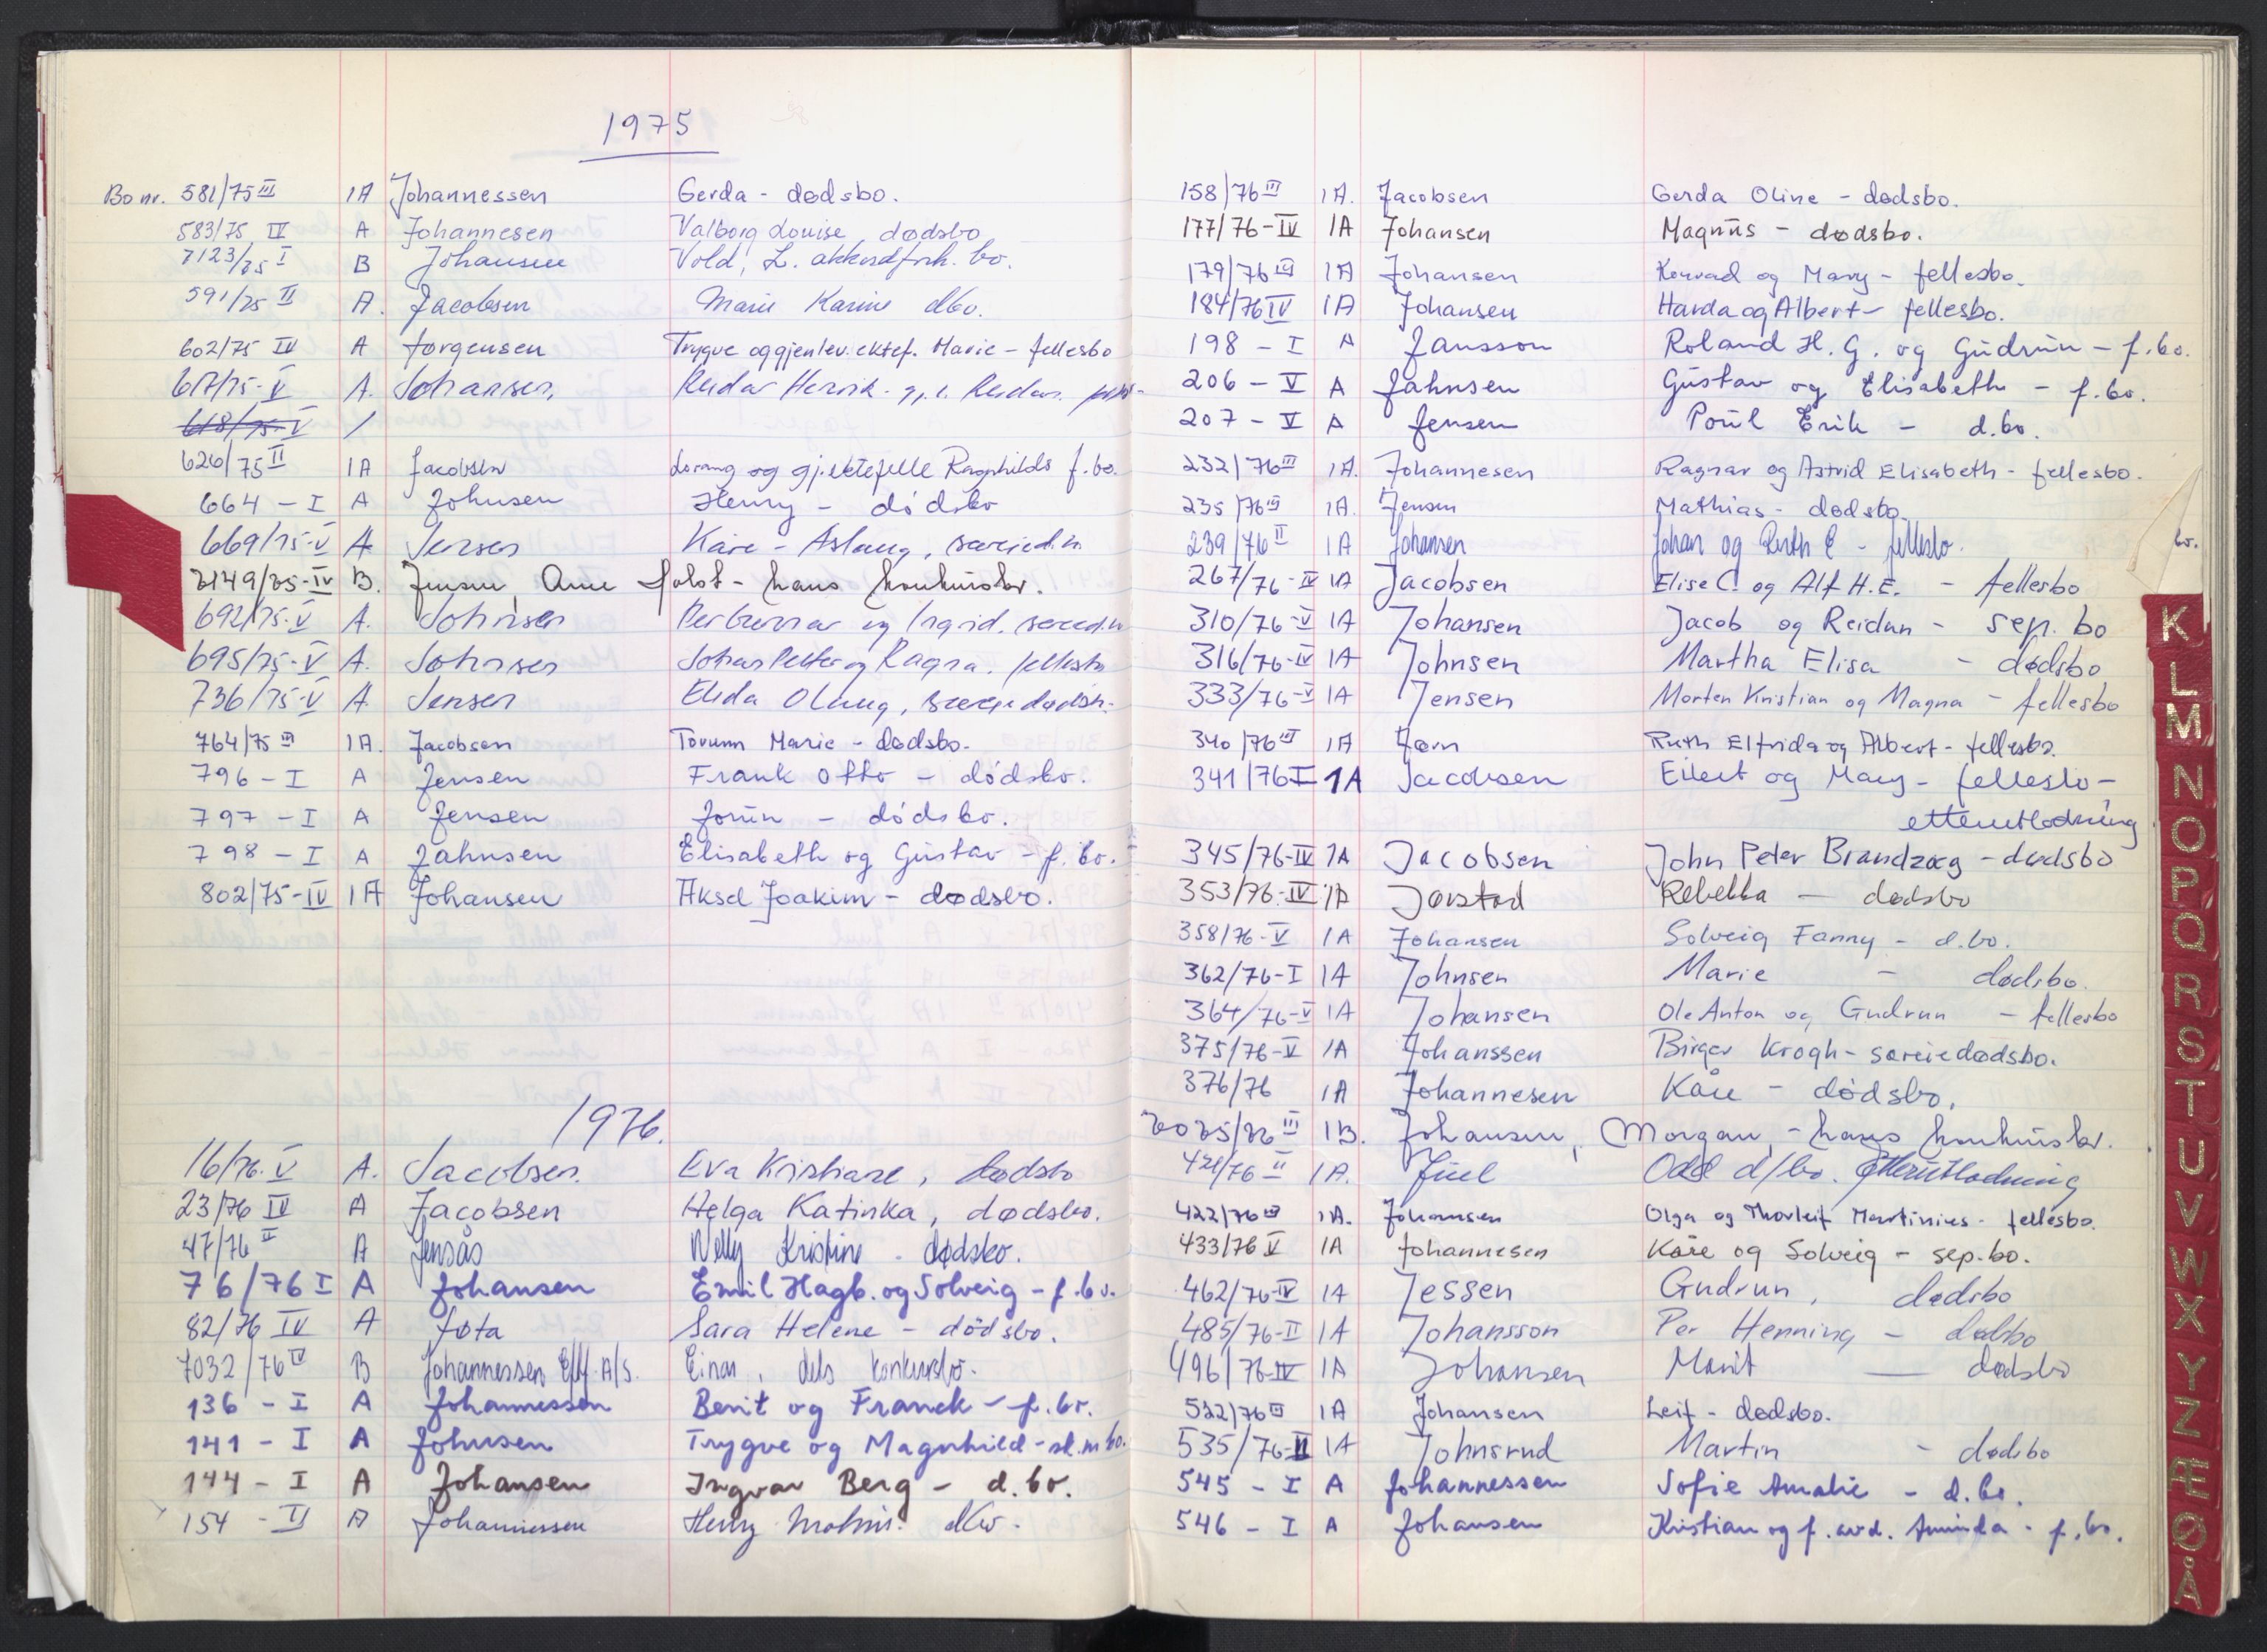 1975
Bo nr. 581/75 III 1A Johannessen Gerda - dødsbo.
583/75 IV A Johannesen Valborg Louise dødsbo
7123/75 I B Johansen Vold, L. akkordforh. bo.
591/75 II A. Jacobsen Marie Karine dbo.
602/75 IV A Jørgensen Trygve og gjenlev. ektef. Marie - fellesbo
617/75-V A. Johansen, Reidar Henrik
618/75-V /
626/75 II 1A Jacobsen og gj. ektefelle Ragnhilds f.bo.
664 - I A Johnsen Henny - dødsbo
669/75-V A Jensen Kåre - Aslaug,
7149/75-IV B. Jensen, Arne Holst - hans konkursbo.
692/75-V A. Johnsen Per Gunnar og Ingrid,
695/75-V A. Johnsen Johan Petter og Ragna, fellesbo
736/75-V A. Jensen Elida Olaug,
764/75 III 1A. Jacobsen Torunn Marie - dødsbo.
796 - I A Jensen Frank Otto - dødsbo.
797 - I A Jensen Jorun - dødsbo.
798 - I A Jahnsen Elisabeth og Gustav - f.bo.
802/75-IV 1A Johansen Aksel Joakim - dødsbo.
1976.
16/76-V A. Jacobsen. Eva Kristiane, dødsbo
23/76 IV A Jacobsen Helga Katinka, dødsbo.
47/76 II A Jensås Willy Kristine - dødsbo.
76/76 I A Johansen Emil Hagb. og Solveig - f.bo.
82/76 IV A Jota Sara Helene - dødsbo.
7032/76 IV B Johannessen Eftf. A/S. Einar, dets konkursbo.
136 - I A Johannessen Berit og Franck - f.bo.
141 - I A Johnsen Trygve og Magnhild - sk.m bo.
144 - I A Johansen Ingvar Berg - d.bo.
154 - II A Johannessen Henry dbo.
158/76 III 1A. Jacobsen Gerda Oline - dødsbo.
177/76-IV 1A Johansen Magnus - dødsbo.
179/76 III 1A Johansen Konrad og Mary - fellesbo.
184/76 IV 1A Johansen Harda og Albert - fellesbo.
198 - I A Jansson Roland H.G. og Gudrun - f.bo.
206 - V A Jahnsen Gustav og Elisabeth - f.bo.
207 - V A Jensen Poul Erik - d.bo.
232/76 III 1A. Johannesen Ragnar og Astrid Elisabeth - fellesbo.
235/76 III 1A. Jensen Mathias - dødsbo.
239/76 II 1A Johansen Johan og Ruth E - fellesbo.
bo.
267/76-IV 1A Jacobsen Elise C. og Alf H.E. - fellesbo
310/76-V 1A Johansen Jacob og Reidun - sep. bo
316/76-IV 1A Johnsen Martha Elisa - dødsbo
333/76-V 1A Jensen Morten Kristian og Magna - fellesbo
340/76 III 1A Jørn Ruth Elfrida og Albert - fellesbo.
341/76 I 1A Jacobsen Eilert og Mary - fellesbo -
etterutlodning
345/76-IV 1A Jacobsen John Peter Brandzæg - dødsbo
353/76-IV 1A Jørstad Rebekka - dødsbo
358/76-V 1A Johansen Solveig Fanny - d.bo.
362/76-I 1A Johnsen Marie - dødsbo.
364/76-V 1A Johansen Ole Anton og Gudrun - fellesbo
375/76-V 1A Johanssen Birger Krogh - særeiedødsbo.
376/76 1A Johannesen Kåre - dødsbo.
7075/76 III 1B. Johansen, Morgan, - hans konkursbo.
421/76 II 1A. Juel Odd d/bo. Etterutlodning
422/76 III 1A. Johansen Olga og Thorleif Martinius - fellesbo.
433/76 V 1A Johannesen Kåre og Solveig - sep.bo.
462/76-IV 1A Jessen Gudrun, dødsbo
485/76-II 1A Johansson Per Henning - dødsbo
496/76-IV 1A Johansen Marit - dødsbo
522/76 III 1A Johansen Leif - dødsbo.
535/76-II 1A Johnsrud Martin - dødsbo
545 - I A Johannessen Sofie Amalie - d.bo.
546 - I A Johansen Kristian og f. avd. Aminda - f.bo.
K
L
M
N
O
P
Q
R
S
T
U
V
W
X
Y
Z
Æ
Ø
Å